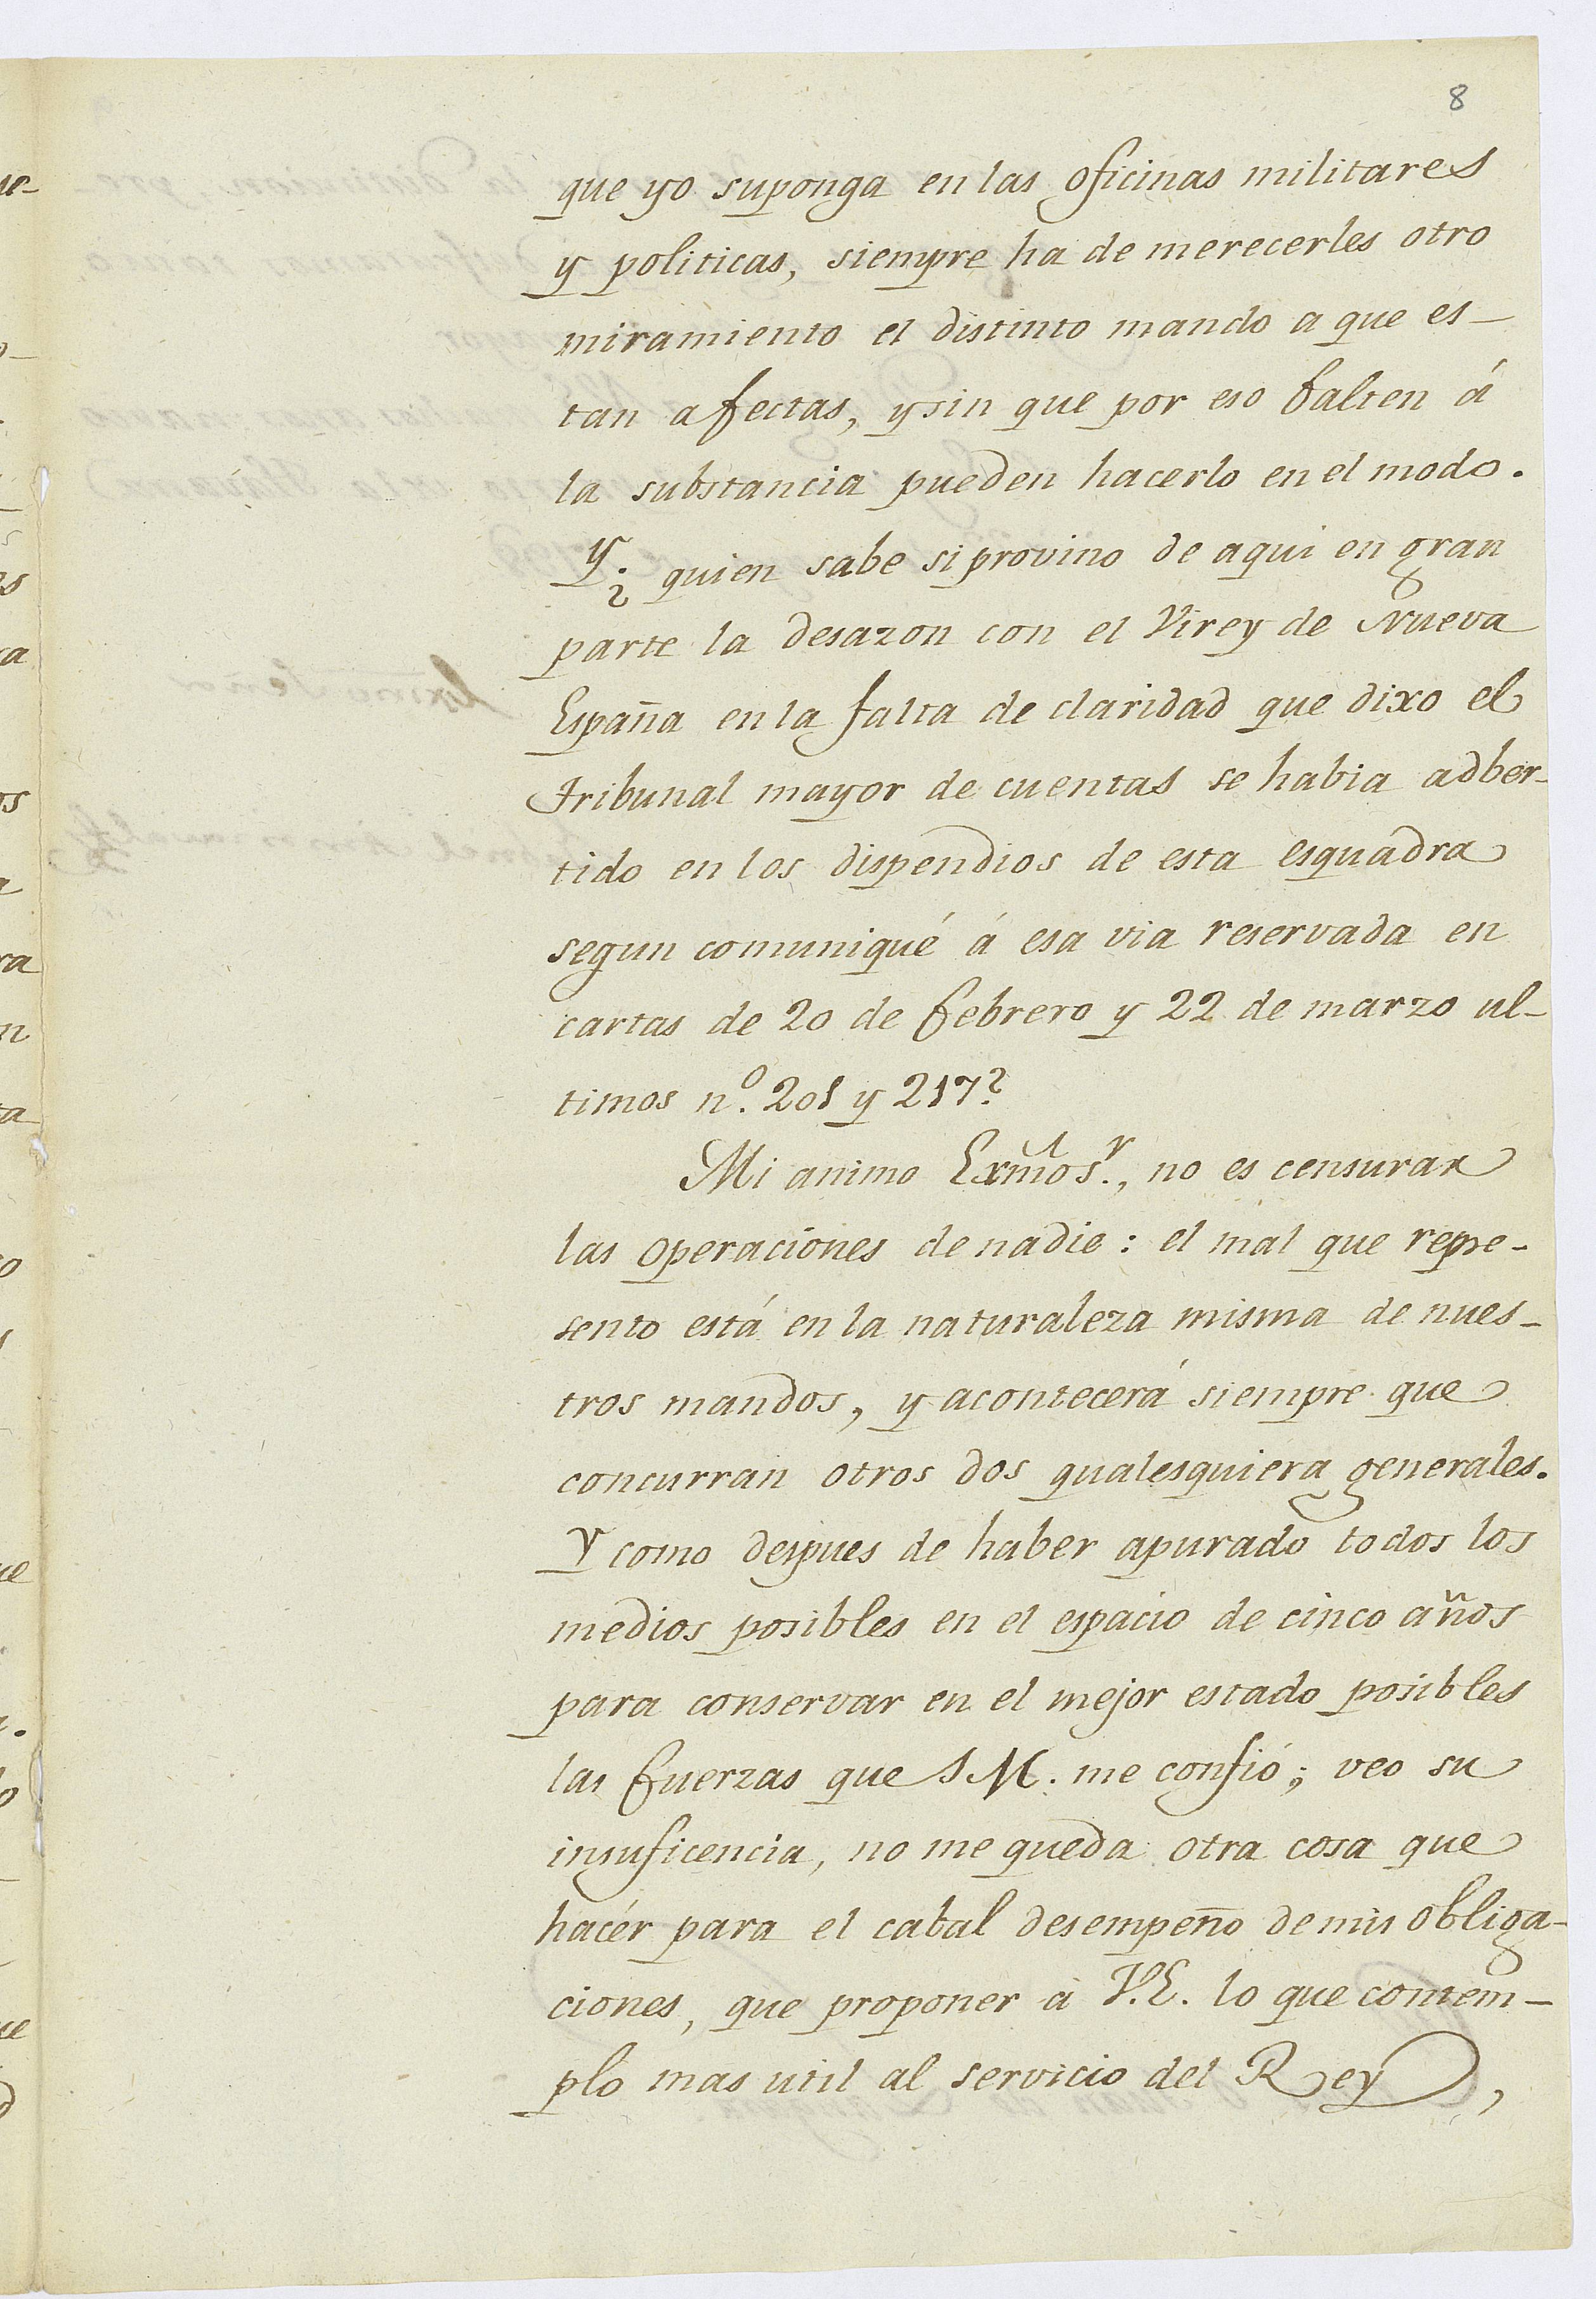 8
que yo suponga en las oficinas militares
y politicas, siempre ha de merecerles otro
miramiento el distinto mando a que es-
tan afectas, y sin que por eso falten á
la substancia pueden hacerlo en el modo.
Y ¿ quien sabe si provino de aqui en gran
parte la desazon con el Virey de Nueva
España en la falta de claridad que dixo el
tribunal mayor de cuentas se habia adber-
tido en los dispendios de esta esquadra
segun comuniqué á esa via reservada en
cartas de 20 de febrero y 22 de marzo ul-
timos n.º 201 y 217?
Mi animo Exmo Sr., no es censurar
las operaciones de nadie: el mal que repre-
sento está en la naturaleza misma de nues-
tros mandos, y acontecerá siempre que
concurran otros dos qualesquiera generales.
Y como despues de haber apurado todos los
medios posibles en el espacio de cinco años
para conservar en el mejor estado posibles
las fuerzas que S M. me confió; veo su
insuficencia, no me queda otra cosa que
hacér para el cabal desempeño de mis obliga-
ciones, que proponer á V.E. lo que contem-
plo mas util al servicio del Rey,